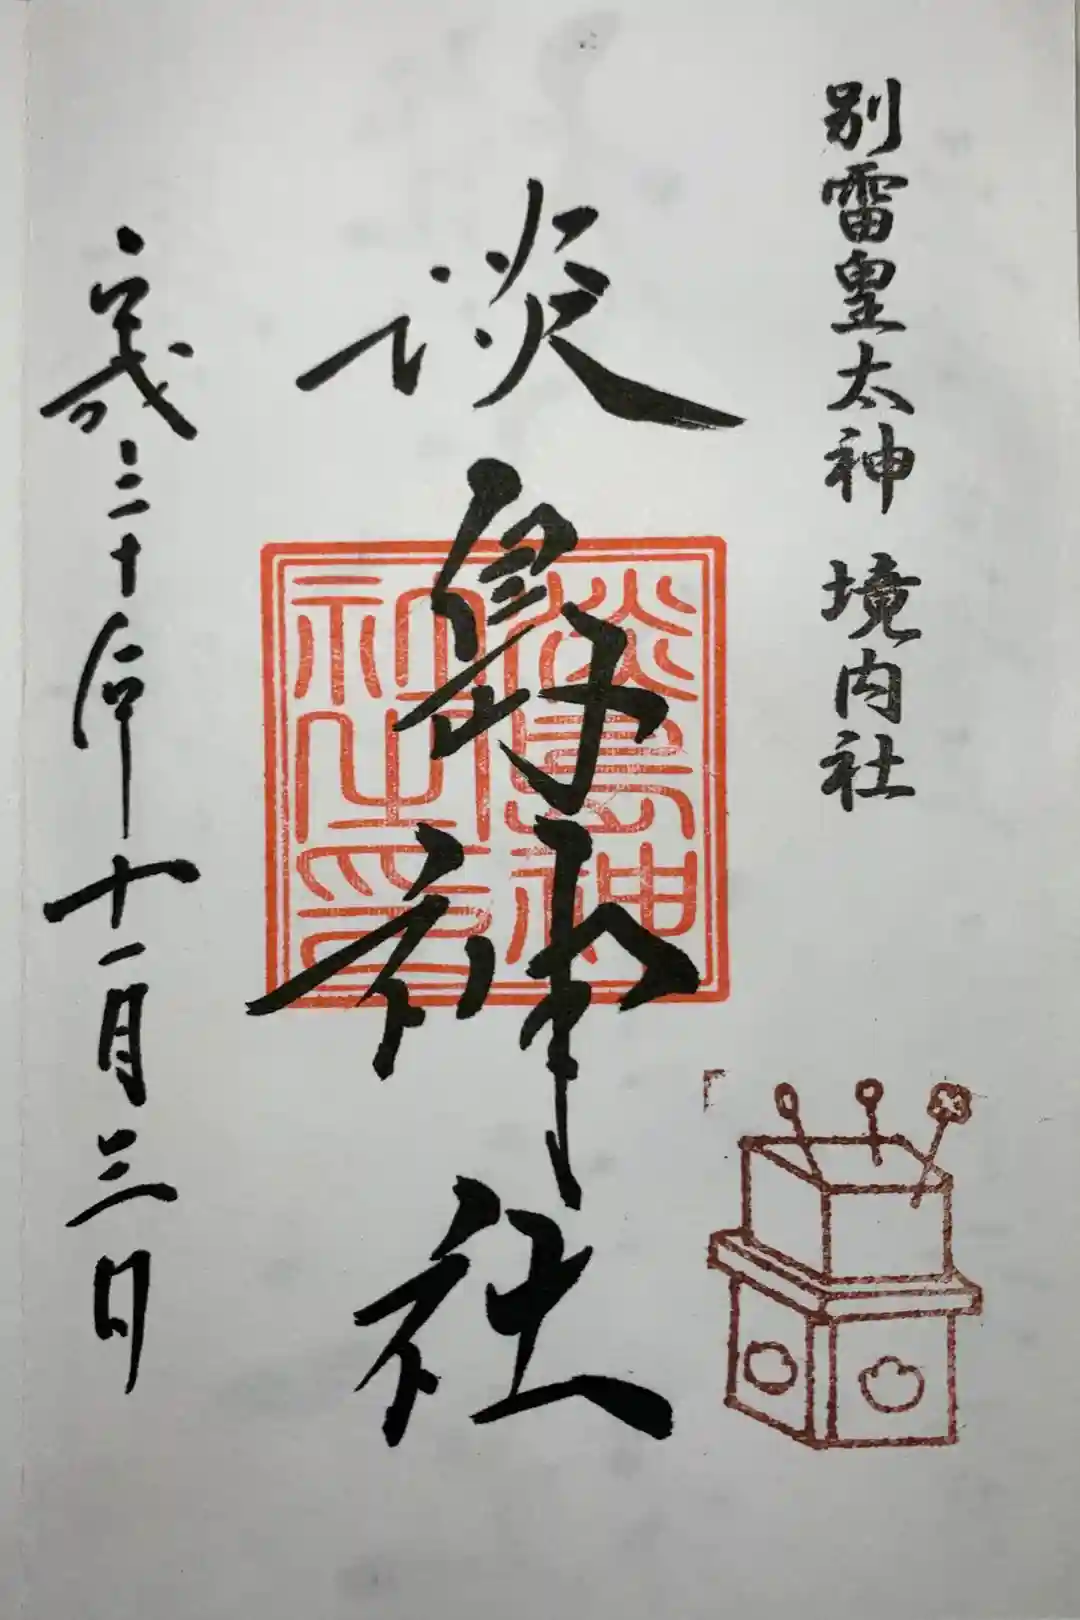 別雷皇太神 境内社
淡島神社
淡島神
社之印
平成三十年十一月三日